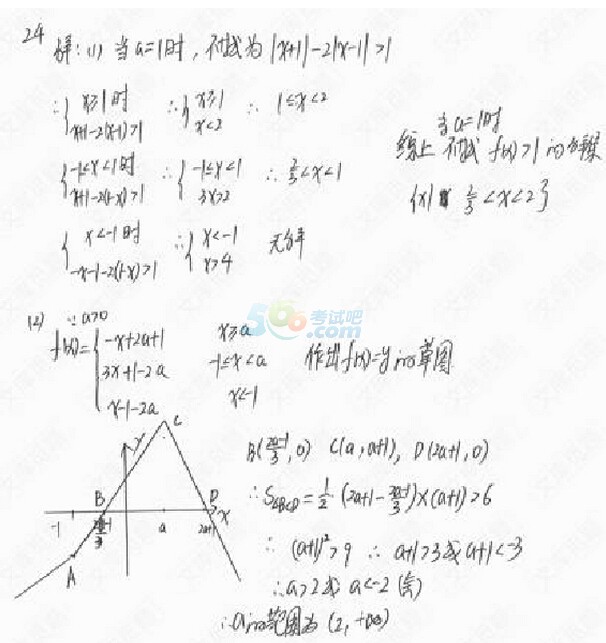 24
解:(1) 当a=1时,不等式为 |x+1|-2|x-1|>1
∴{x≥1时 x+1-2(x-1)>1 ∴{x≥1 x<2 ∴ 1≤x<2
{-1≤x<1时 x+1-2(1-x)>1 ∴{-1≤x<1 3x>2 ∴ 2/3<x<1
{x<-1时 -x-1-2(1-x)>1 ∴{x<-1 x>4 无解
当a=1时
综上 不等式 f(x)>1 的解集
{x| 2/3<x<2}
(2) ∵a>0
f(x)={-x+2a+1 x≥a
3x+1-2a -1≤x<a
x-1-2a x<-1
作出f(x)=y的草图
y
C
B
D
x
-1
(2a-1)/3
a
2a+1
A
B((2a-1)/3,0) C(a,a+1), D(2a+1,0)
∴S△BCD=1/2(2a+1-(2a-1)/3)×(a+1)>6
∴ (a+1)²>9 ∴ a+1>3或a+1<-3
∴a>2或a<-2(舍)
∴a的范围为(2,+∞)
566考试吧